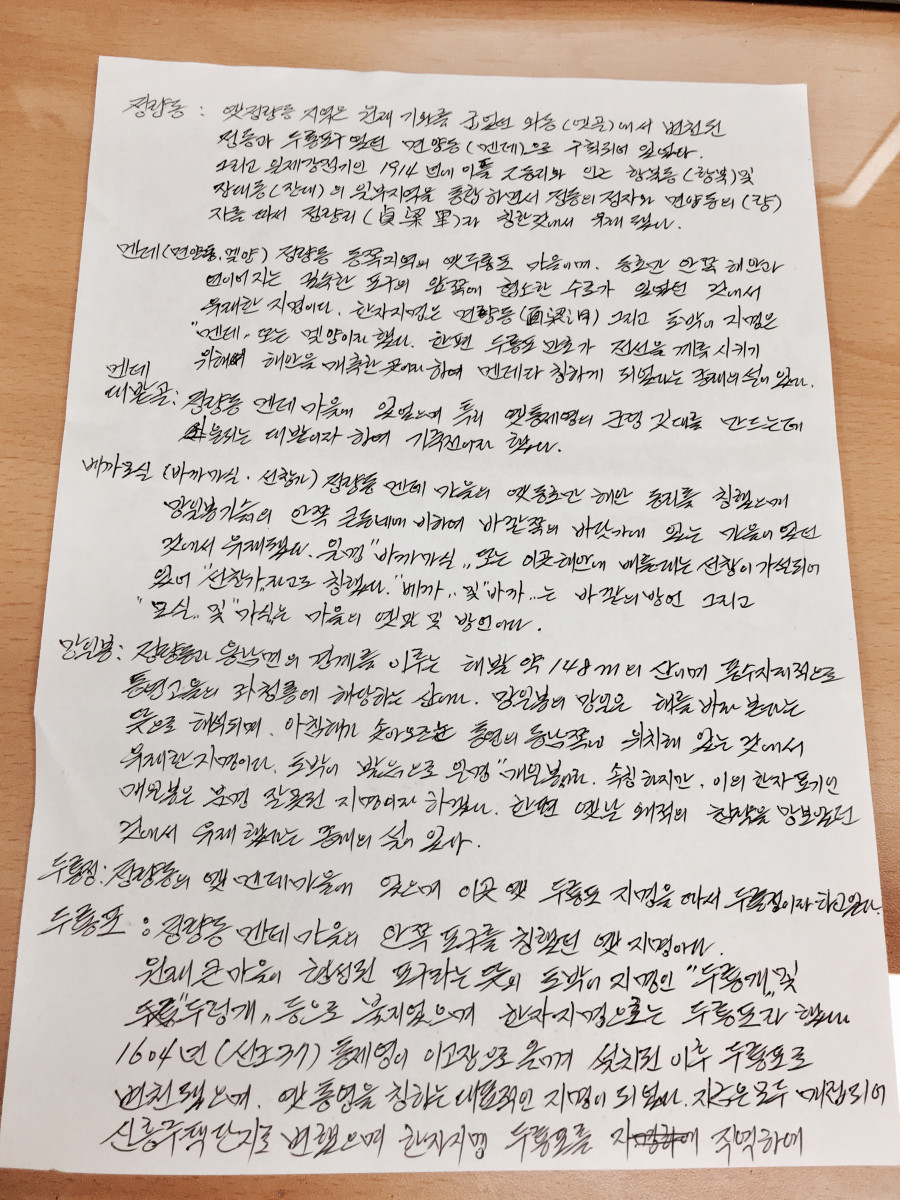 정량동 : 옛정량동 지역은 원래 기와를 구웠던 와동(옛골)에서 변천된
정동과 두룡포구 였던 면양동(멘데)으로 구획되어 있었다.
그리고 일제강점기인 1914년에 이를 인근 항북동(항북)및
장대동(장대)의 일부지역을 통합하면서 정동의 정자와 면양동의 (량)
자를 따서 정량리(貞梁里)라 칭한것에서 유래됐다.
멘데(면양동.멧양) 정량동 동쪽지역의 옛두룡포 마을이며. 동호만 안쪽 해안과
연이어지는 길숙한 포구의 앞쪽에 협소한 수로가 있었던 것에서
유래한 지명이다. 한자지명은 면량동( 梁洞) 그리고 토박이 지명은
"멘데" 또는 멧양이라 했다. 한편 두룡포 만호가 전선을 계류시키기
위해 해안을 매축한 곳이라 하여 멘데라 칭하게 되었다는 종래의 설이 있다.
멘데
대밭골 : 정량동 멘데 마을에 있었으며 특히 옛통제영의 군영 깃대를 만드는데
쓰는 대밭이라 하여 했다.
베까모실 (바까가실. 선창가) 정량동 멘데 마을의 옛동호만 해안 동리를 칭했으며
망일봉기슭의 안쪽 큰동네에 비하여 바깥쪽의 바닷가에 있는 마을이 있던
것에서 유래됐다. 일명 "바까가실" 또는 이곳해안에 배를대는 선창이 가설되어
있어 "선창가"라고도 칭했다. "베까" 및 "바까"는 바깥의방언 그리고
"모실" 및 "가실"는 마을의 옛말 및 방언이다.
망일봉 : 정량동과 용남면의 경계를 이루는 해발 약 148m의 산이며 풍수지리적으로
통영고을의 좌청룡에 해당하는 산이다. 망일봉의 망일은 해를 바라 본다는
뜻으로 해석되며. 아침해가 솟아오르는 통영의 동남쪽에 위치해 있는 것에서
유래한지명이다. 토박이 발음으로 일명 "매일봉"이라. 속칭하지만, 이의 한자 표기인
매일봉은 분명 잘못된 지명이라 하겠다. 한편 옛날 왜적의 침략을 망보았던
것에서 유래 했다는 종래의 설이 있다
두룡정 : 정량동의 옛 멘데마을에 있으며 이곳 옛 두룡포 지명을 따서 두룡정이라 하고있다.
두룡포 : 정량동 멘데 마을의 안쪽 포구를 칭했던 옛 지명이다.
원래 큰 마을이 형성된 포구라는 뜻의 토박이 지명인 "두룡개" 및
"두렁개" 등으로 불리었으며 한자지명으로는 두룡포라 했다.
1604년(선조37) 통제영이 이고장으로 옮겨 설치된 이후 두룡포로
변천됐으며. 옛 통영을 칭하는 대표적인 지명이 되었다. 지금은 모두 매립되어
신흥주택단지로 변했으며 한자지명 두룡포를 직역하여